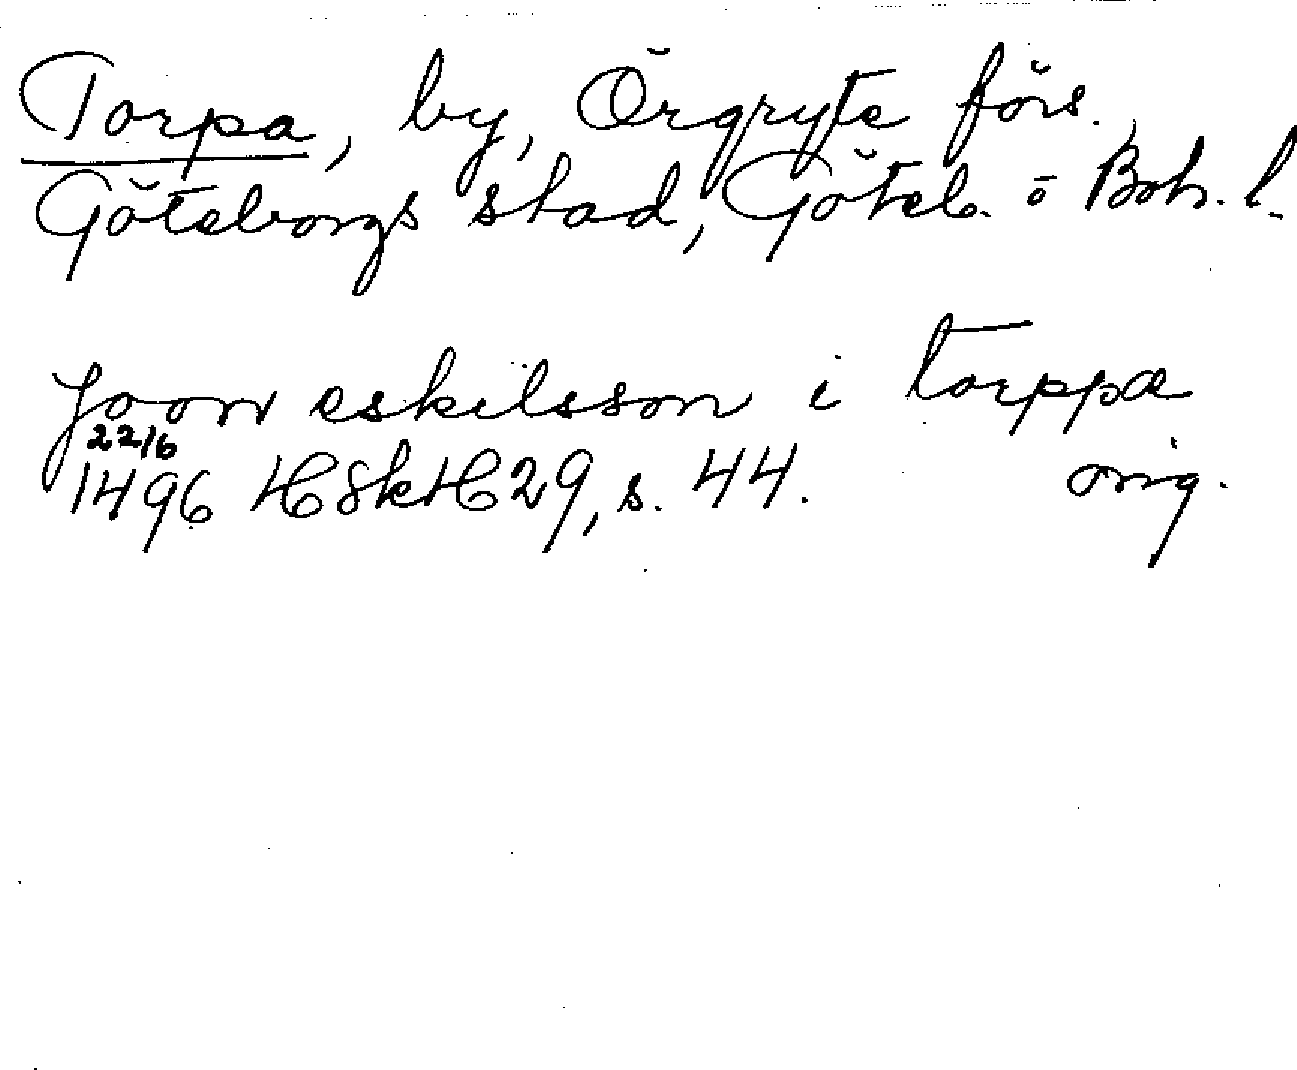 Torpa, by, Örgryte förs.,
Göteborgs stad, Göteb. o Boh. l.
Joon eskilsson i torppæ
22/6
1496 HSkH 29, s. 44. orig.